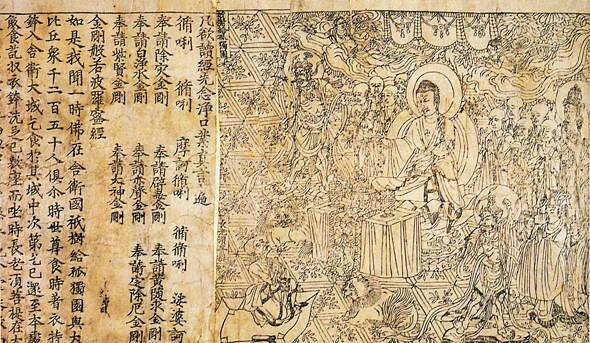 凡欲讀經先念淨口業真言 遍
脩唎 脩唎 摩訶脩唎 脩脩唎 娑婆訶
奉請除灾金剛 奉請辟毒金剛 奉請黃隨求金剛
奉請白淨水金剛 奉請赤聲金剛 奉請定除厄金剛
奉請紫賢金剛 奉請大神金剛
金剛般若波羅蜜經
如是我聞一時佛在舍衛國祇樹給孤獨園與大
比丘衆千二百五十人俱尒時世尊食時著衣持
鉢入舍衛大城乞食於其城中次第乞已還至本處
飯食訖收衣鉢洗足已敷座而坐時長老須菩提在大